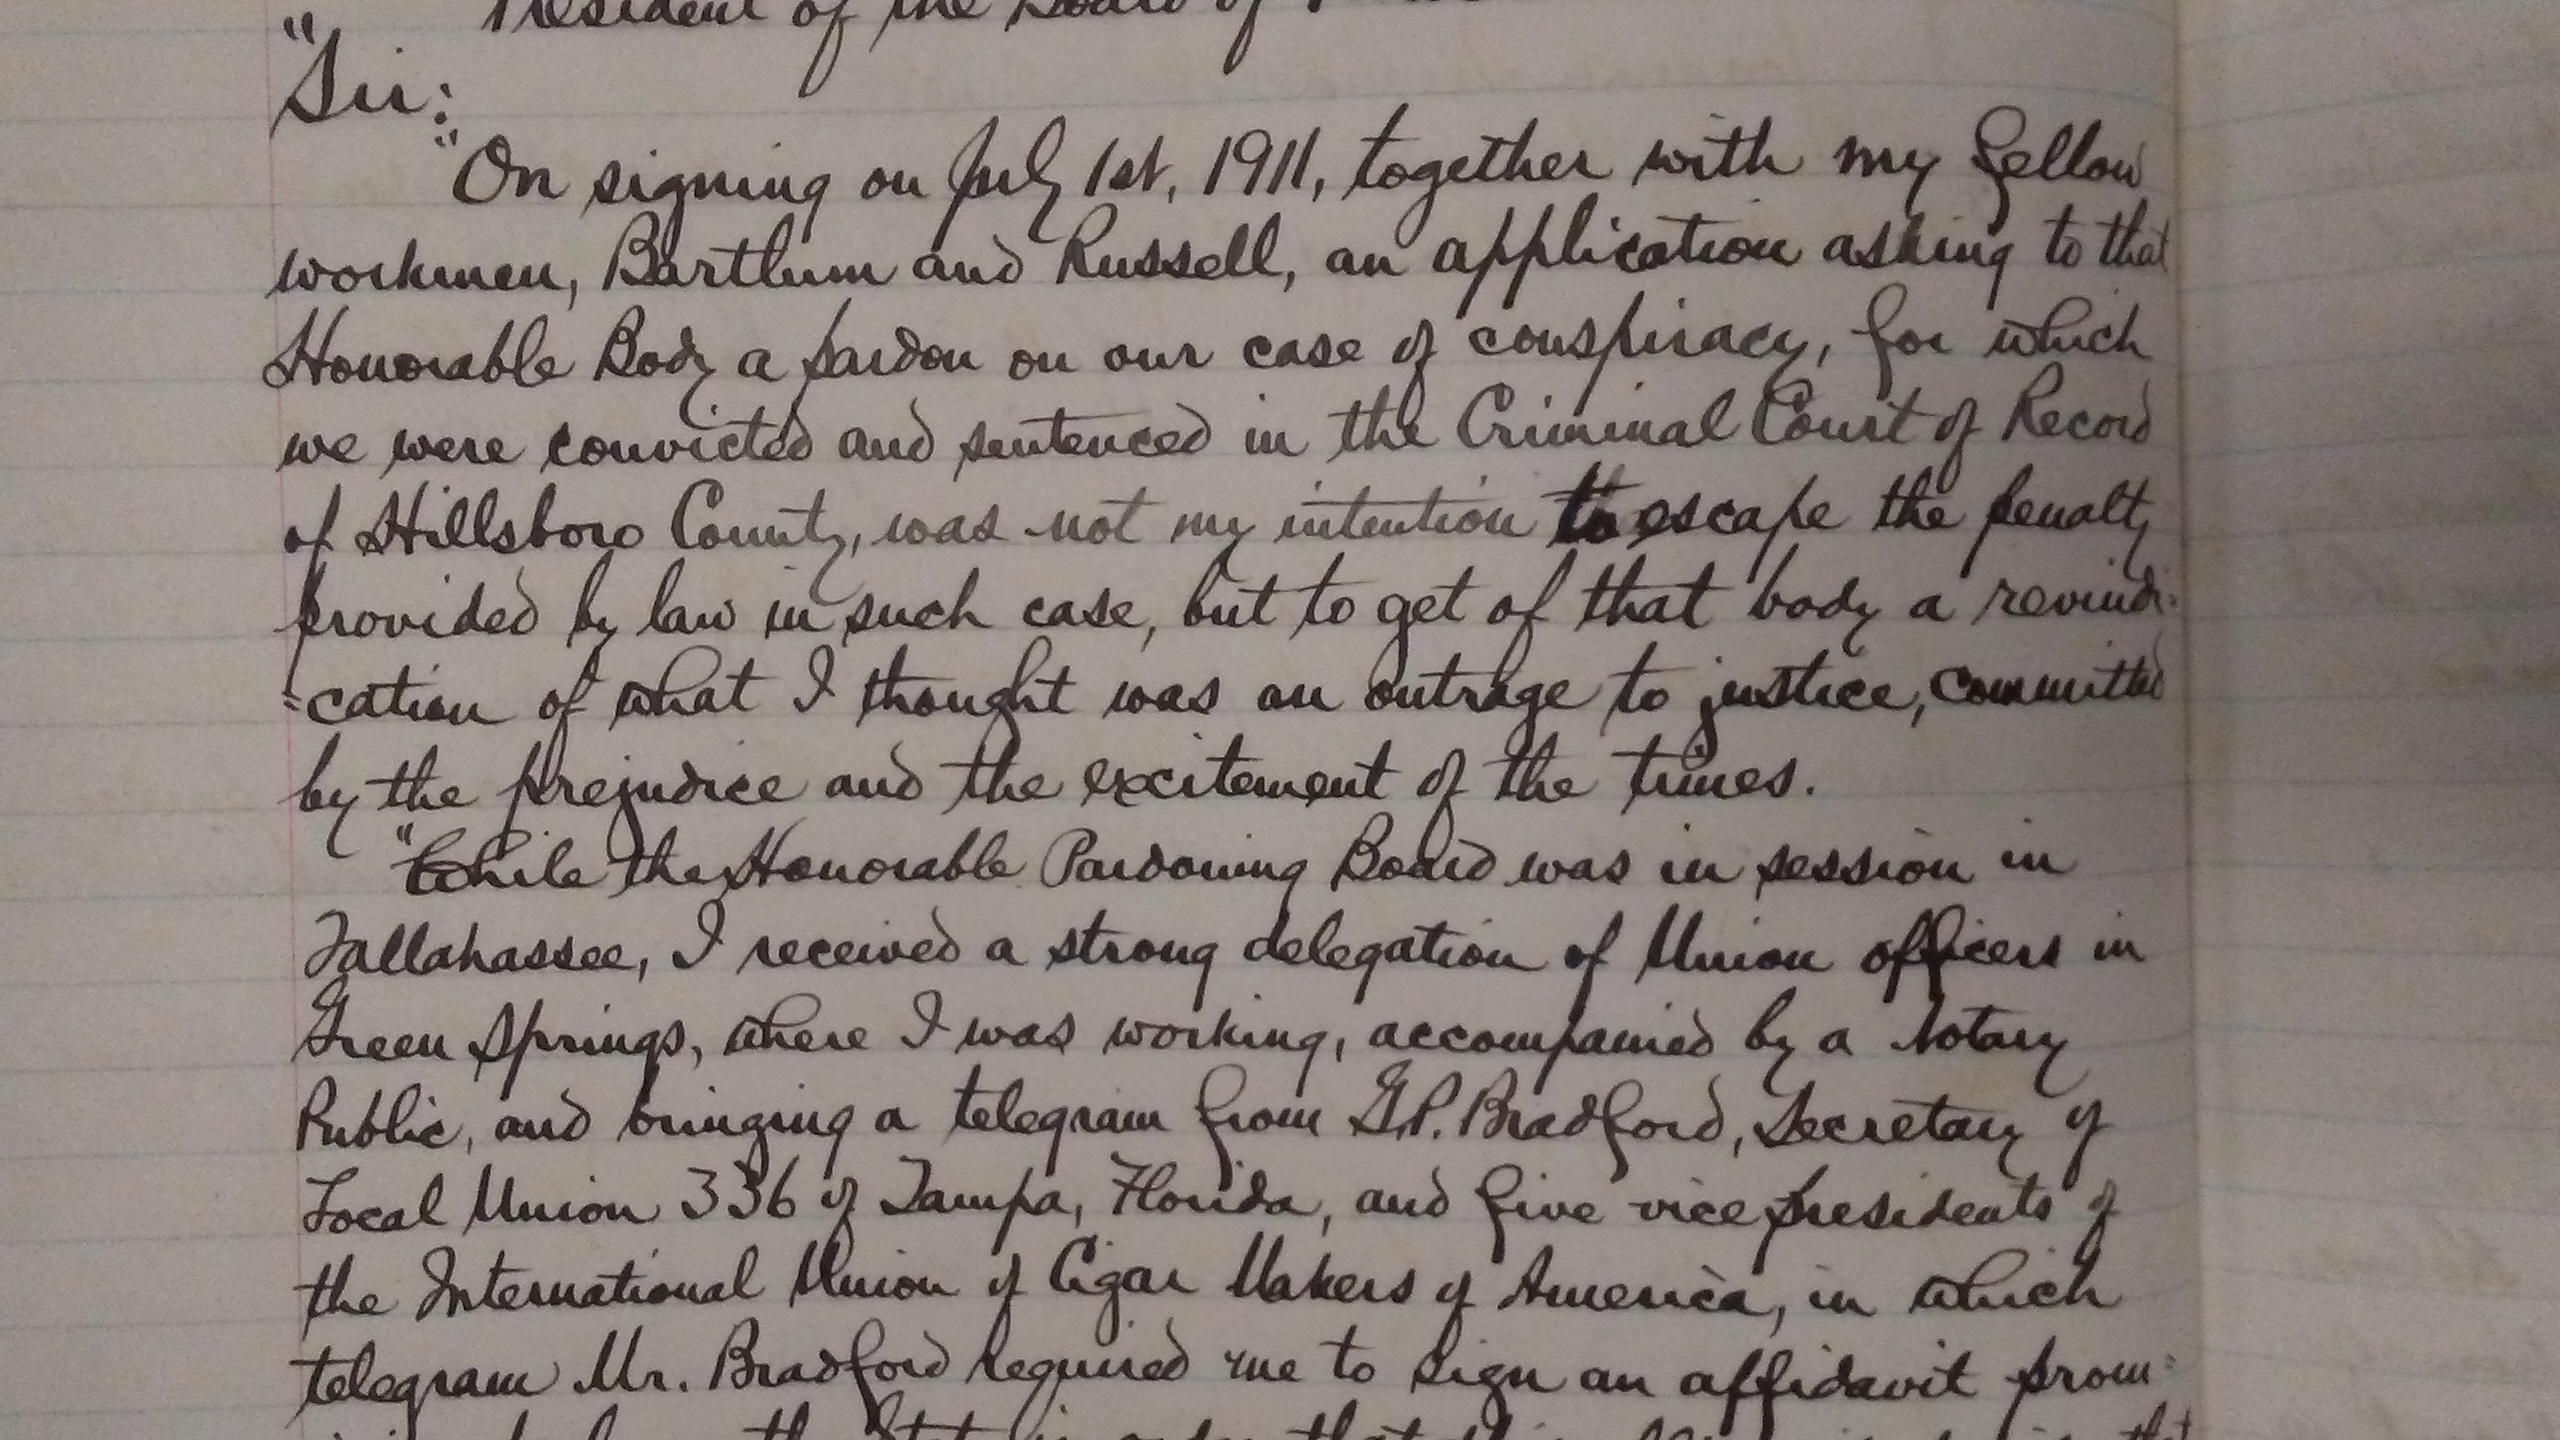 President of the Board of
"Sir:
"On signing on July 1st, 1911, together with my fellow
workmen, Bartlum and Russell, an application asking to that
Honorable Body a pardon on our case of conspiracy, for which
we were convicted and sentenced in the Criminal Court of Record
of Hillsboro County, was not my intention to escape the penalty
provided by law in such case, but to get of that body a revindi-
"cation of what I thought was an outrage to justice, committed
by the prejudice and the excitement of the times.
"While the Honorable Pardoning Board was in session in
Tallahassee, I received a strong delegation of Union officers in
Green Springs, where I was working, accompanied by a Notary
Public, and bringing a telegram from G.P. Bradford, Secretary of
Local Union 336 of Tampa, Florida, and five vice presidents of
the International Union of Cigar Makers of America, in which
telegram Mr. Bradford required me to sign an affidavit prom-